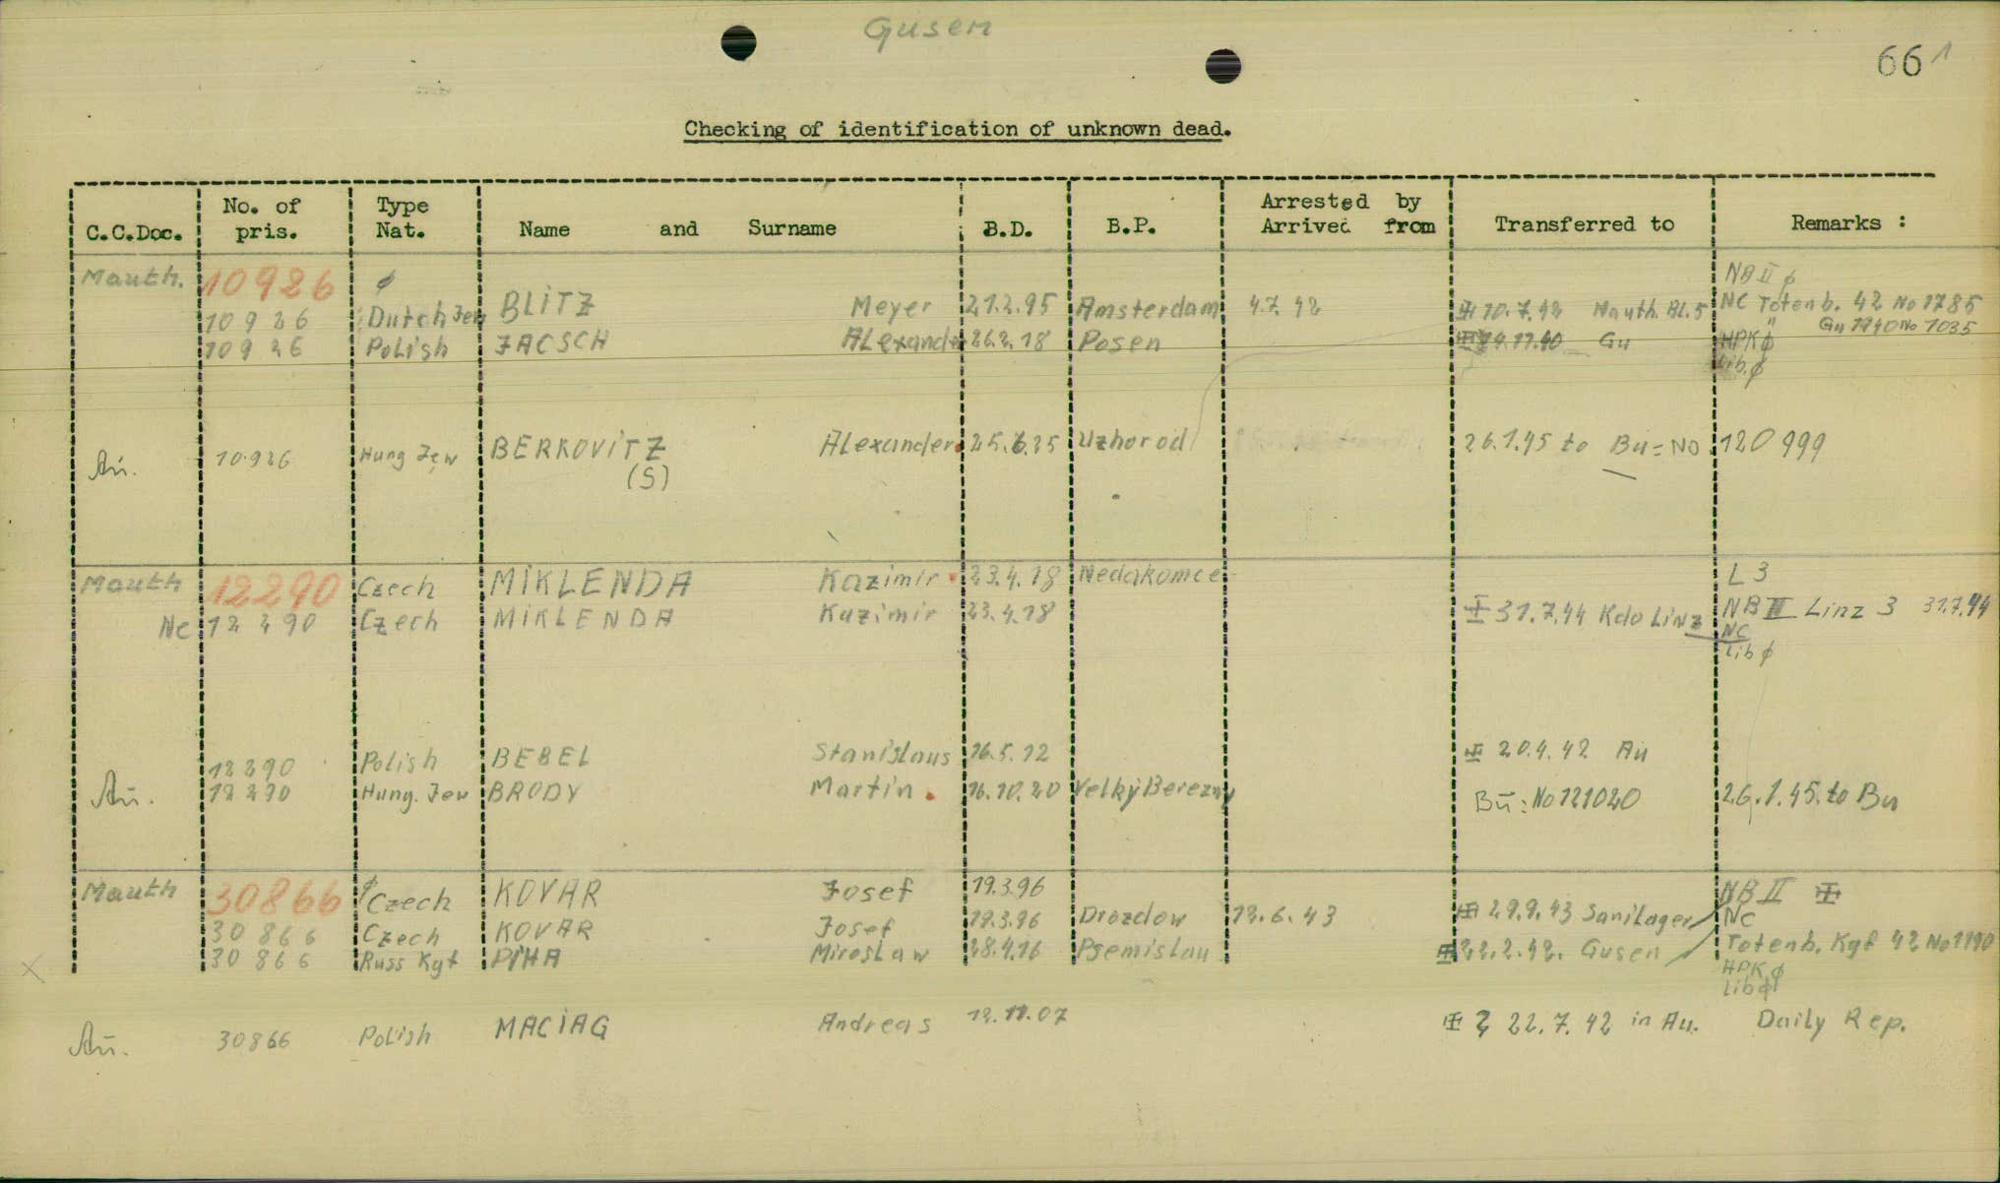 Gusen
661
Checking of identification of unknown dead.
C.C.Doc. No. of pris. Type Nat. Name and Surname B.D. B.P. Arrested by Arrived from Transferred to Remarks :
Mauth. 10926 ϕ NB II ϕ
10926 Dutch Jew BLITZ Meyer 21.2.95 Amsterdam 4.7.42 10.7.42 Mauth. Bl.5 NC Totenb. 42 No 1785
10926 Polish JACSCH Alexander 26.2.18 Posen 11.40 Gu Gu 1940 No 1035
HPK ϕ
Lib. ϕ
Au. 10926 Hung Jew BERKOVITZ Alexander 25.6.25 Uzhorod 26.1.45 to Bu = No 120999
(S)
Mauth 12290 Czech MIKLENDA Kazimir 23.4.18 Nedakonice L 3
Nc 12290 Czech MIKLENDA Kazimir 23.4.18 31.7.44 Kdo Linz NB III Linz 3 31.7.44
NC
Lib ϕ
12290 Polish BEBEL Stanislaus 16.5.12 20.4.42 Au
Au. 12290 Hung. Jew BRODY Martin 16.10.20 Velky Berezny Bu: No 121020 26.1.45. to Bu
Mauth 30866 ϕ Czech KOVAR Josef 19.3.96 NB II
30866 Czech KOVAR Josef 19.3.96 Drozdow 12.6.43 29.9.43 Sanilager Nc
30866 Russ Kgf PIHA Miroslaw 28.4.16 Psemislau 22.2.42. Gusen Totenb. Kgf 42 No 1190
HPK ϕ
Lib ϕ
Au. 30866 Polish MACIAG Andreas 12.11.07 22.7.42 in Au. Daily Rep.